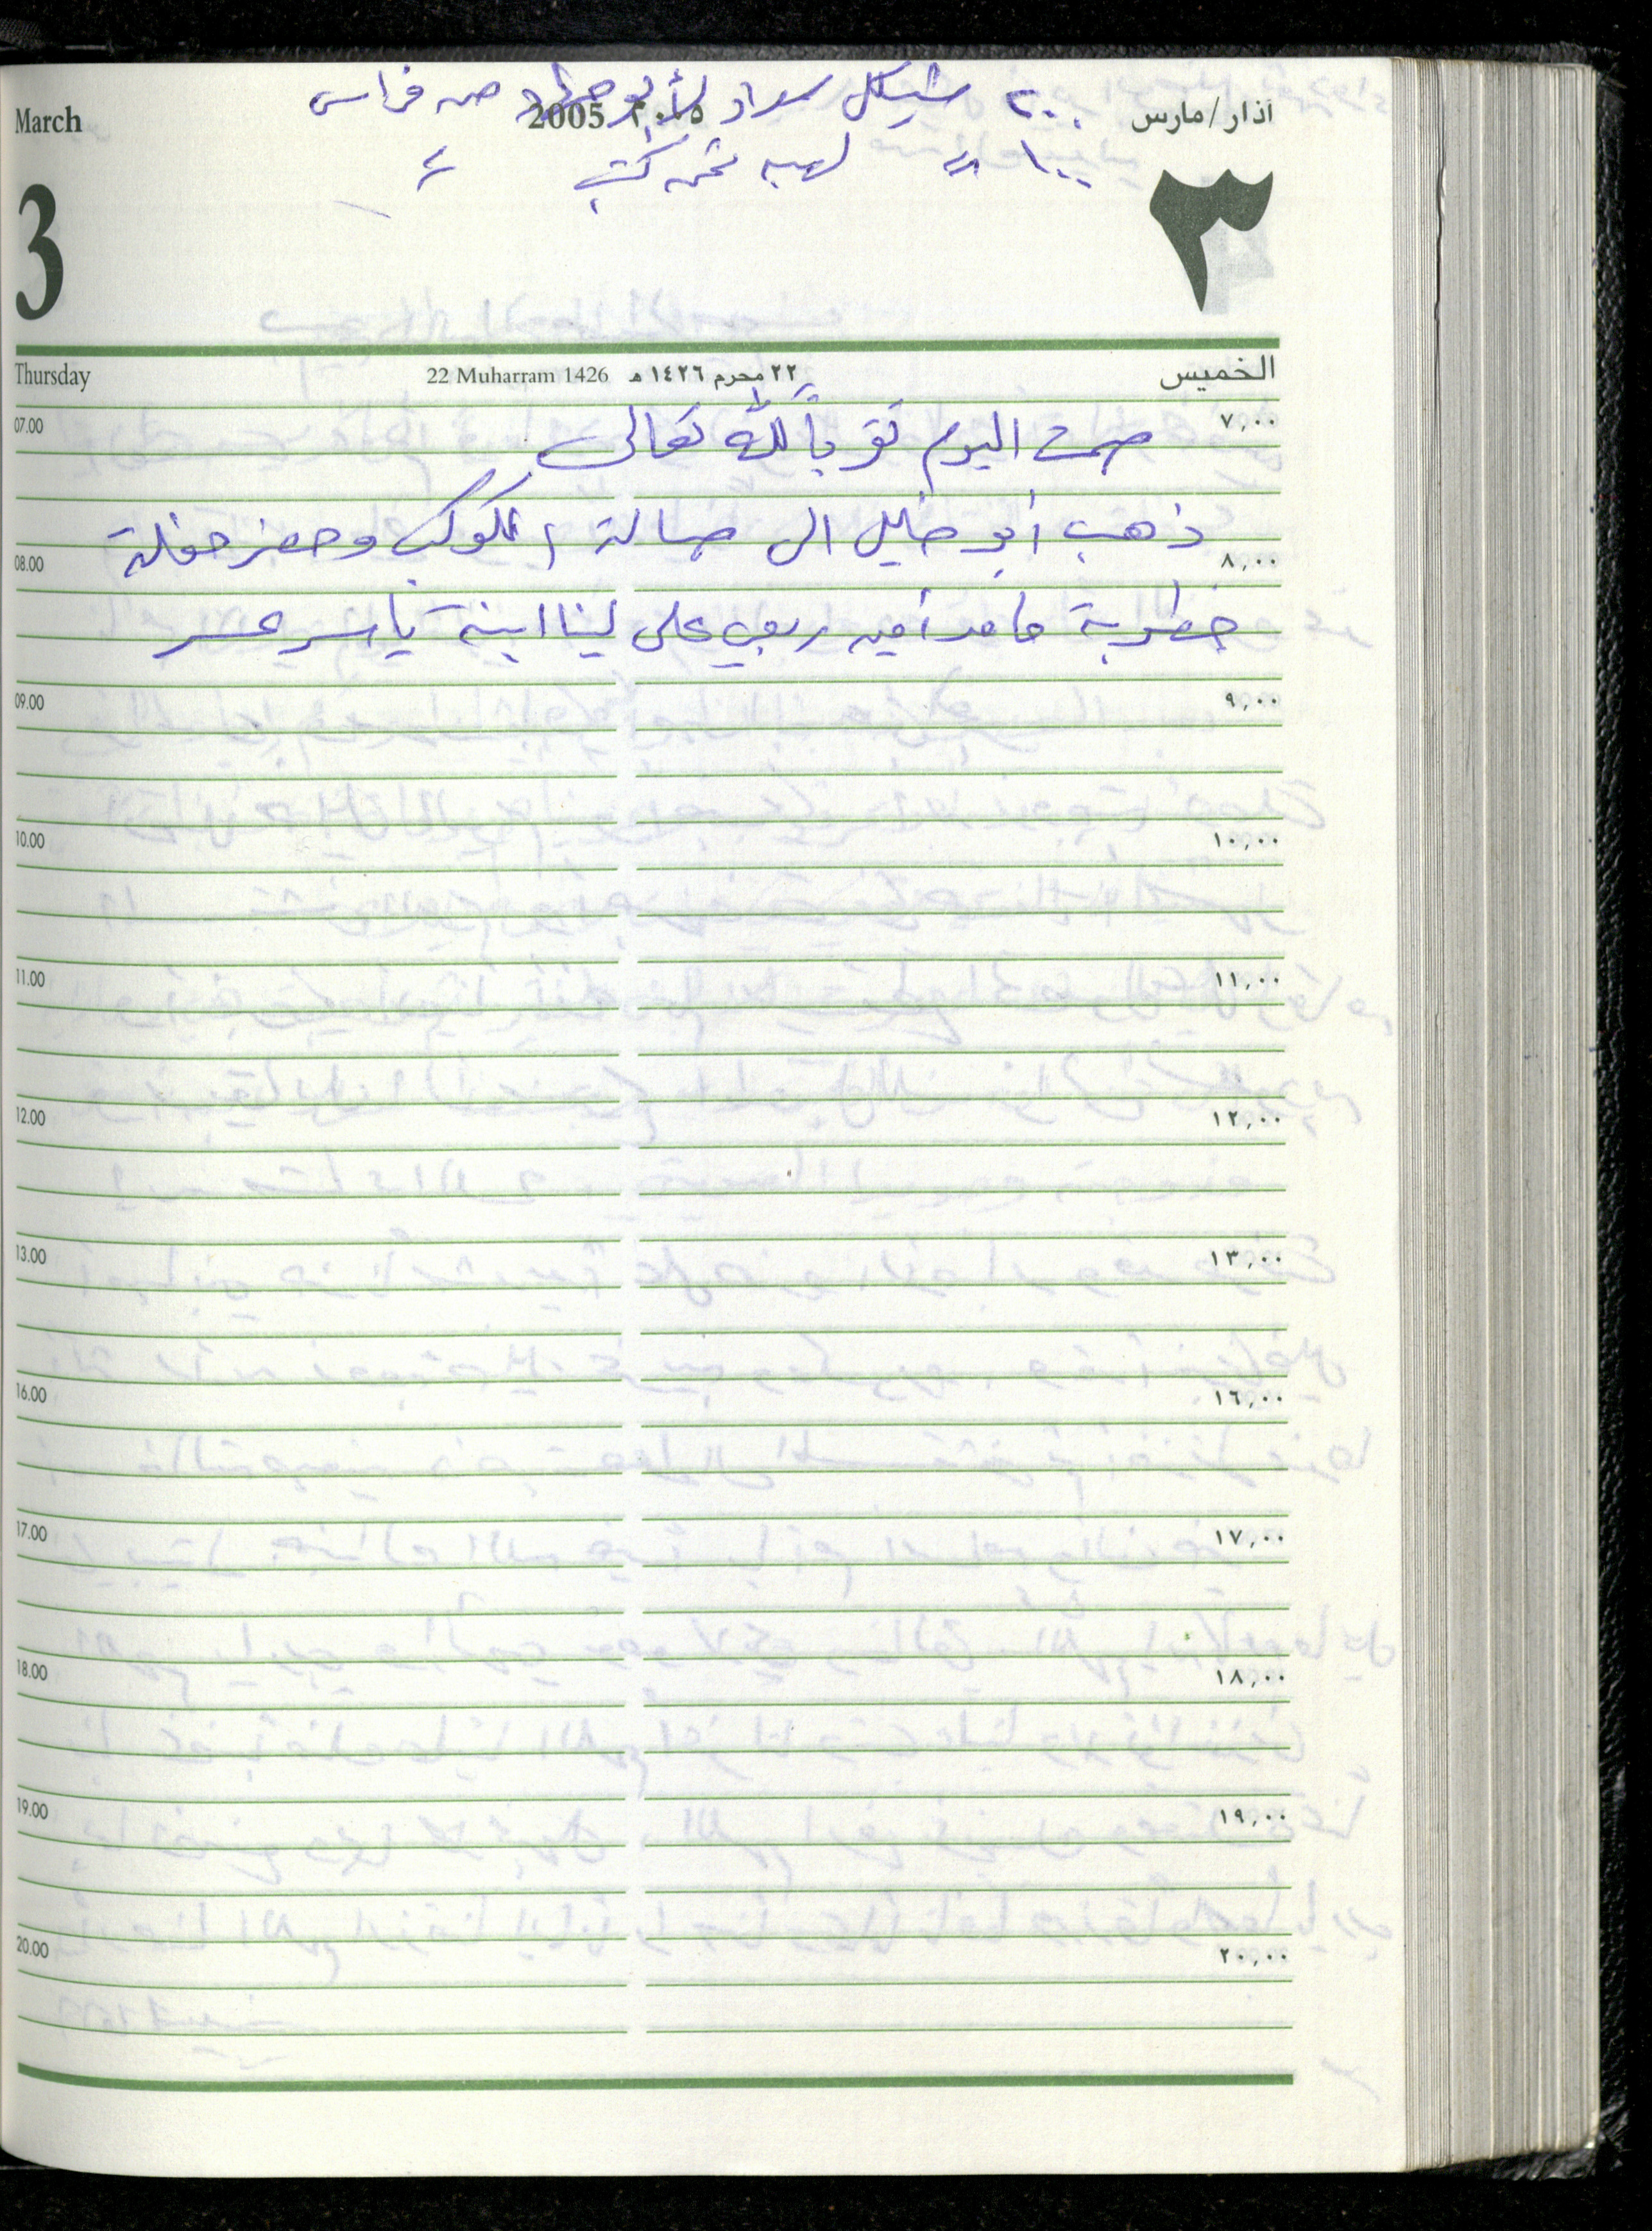 ٢٠٠ شيكل سداد لأبو من فراس
March 2005 ٢٠٠٥ آذار/مارس
١٠٠ " لهبه ثمن كتب "
3 ٣
Thursday 22 Muharram 1426 ٢٢ محرم ١٤٢٦ هـ الخميس
07.00 ٧,٠٠
صمت اليوم تقرباً لله تعالى
ذهب أبو خليل الى صالة الكوكب وحضر حفلة
08.00 ٨,٠٠
خطوبة حامد أمين ربعي على لينا ابنة ياسر
09.00 ٩,٠٠
10.00 ١٠,٠٠
11.00 ١١,٠٠
12.00 ١٢,٠٠
13.00 ١٣,٠٠
16.00 ١٦,٠٠
17.00 ١٧,٠٠
18.00 ١٨,٠٠
19.00 ١٩,٠٠
20.00 ٢٠,٠٠